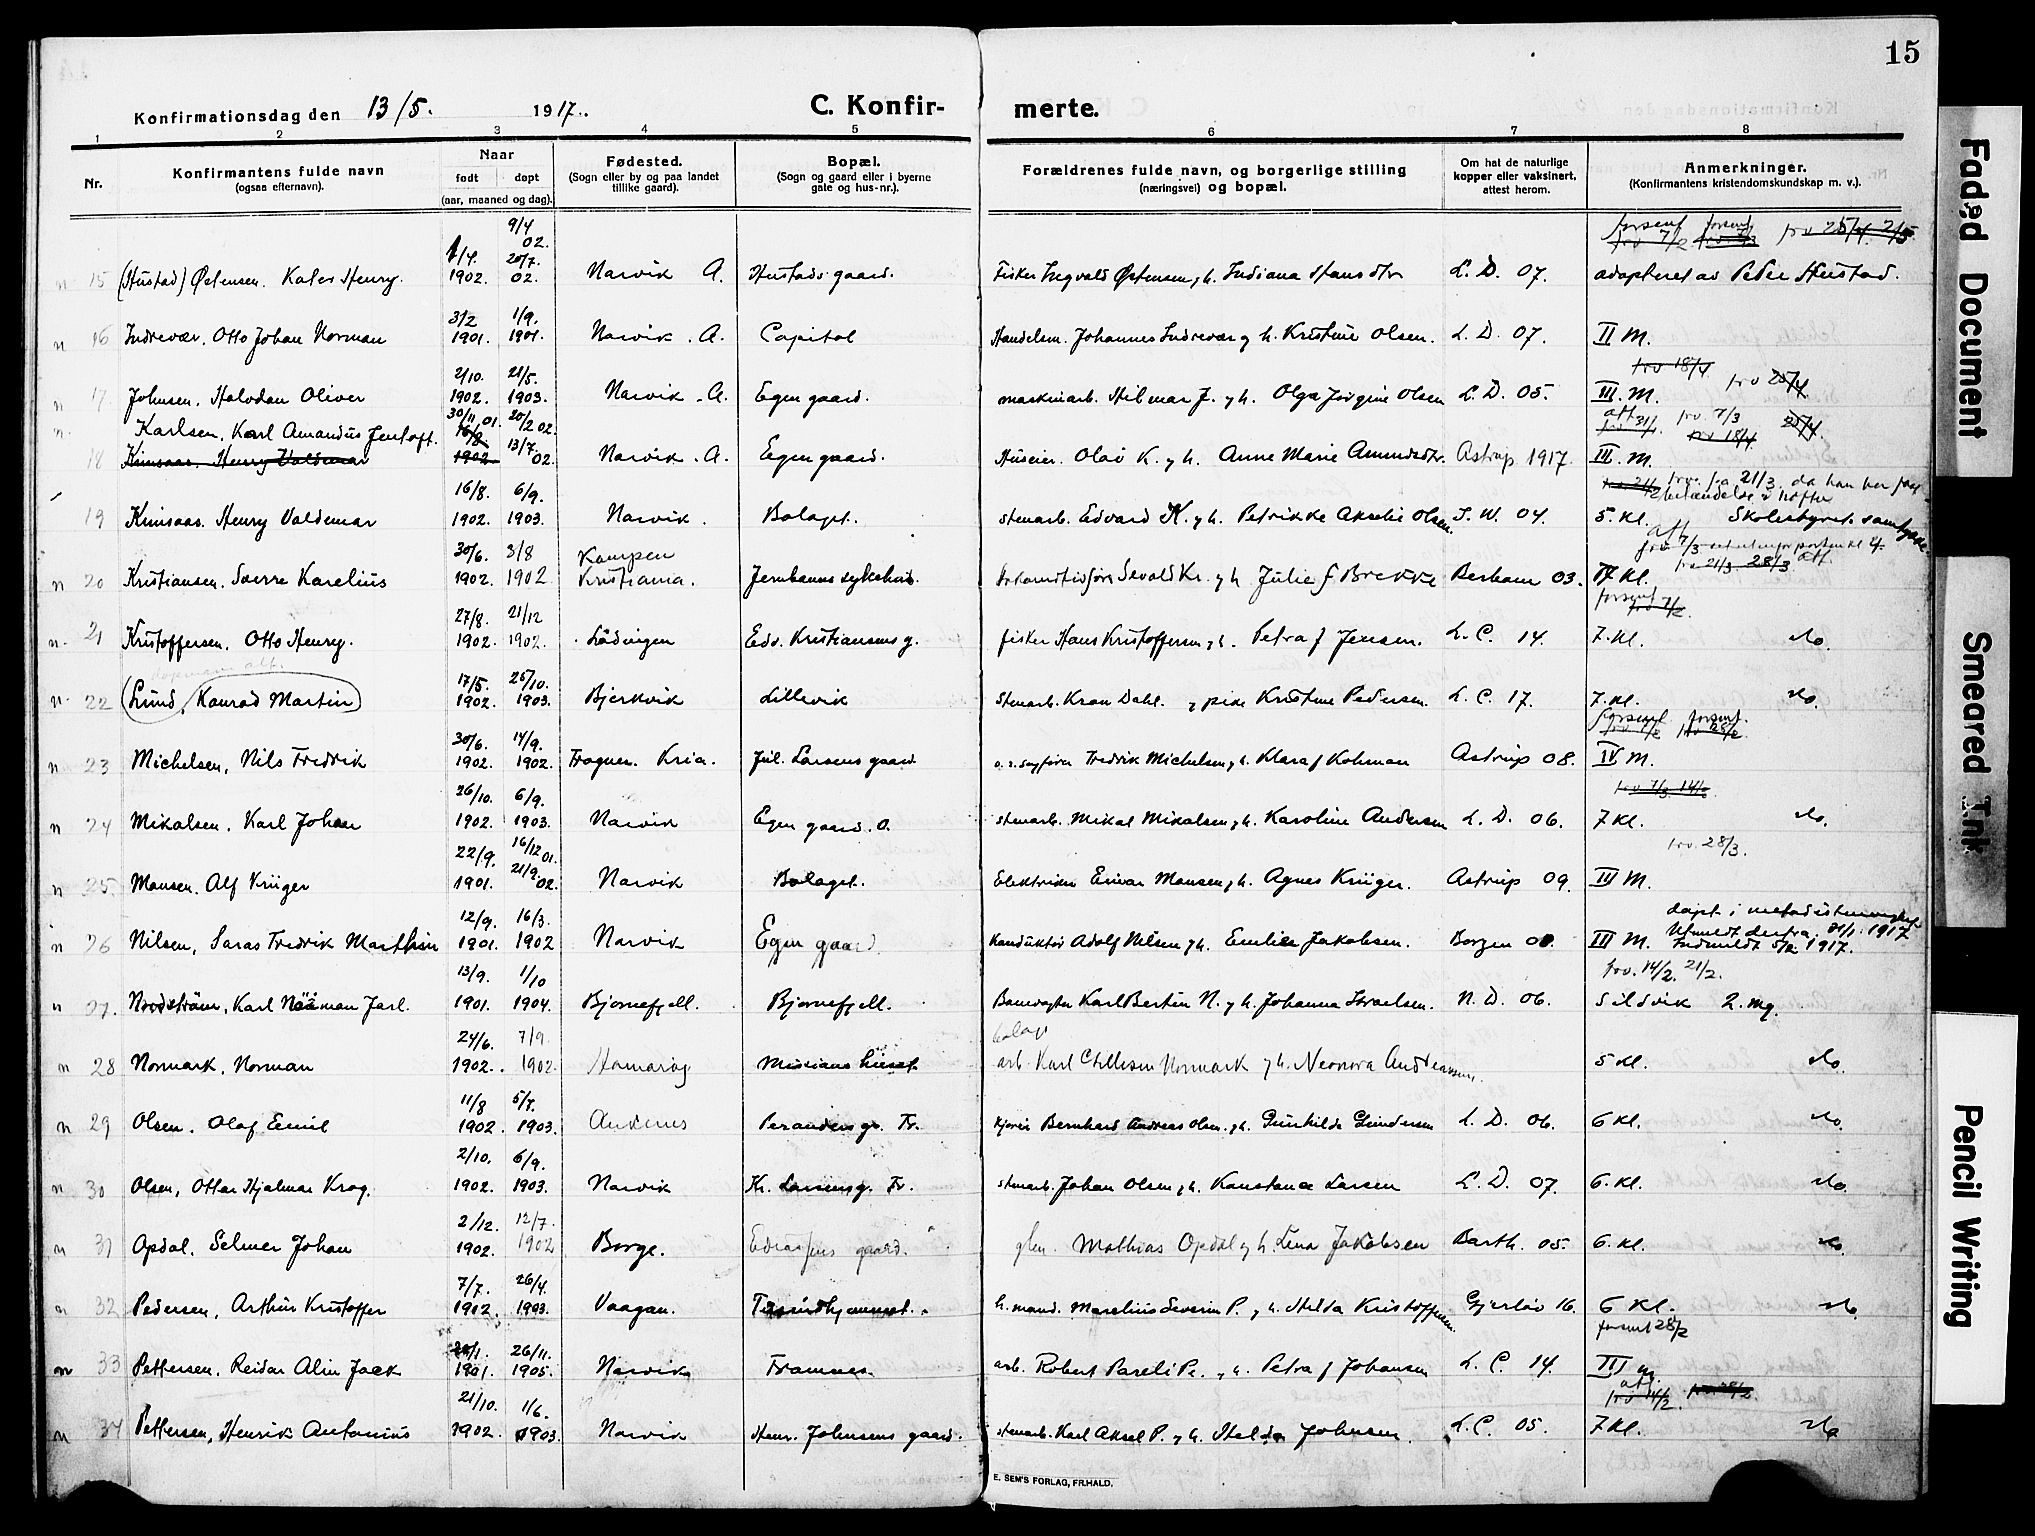 15
Konfirmationsdag den 13/5. 1917.
C. Konfir- merte.
1 2 3 4 5 6 7 8
Nr.
Konfirmantens fulde navn
(ogsaa efternavn).
Naar
født døpt
(aar, maaned og dag).
Fødested.
(Sogn eller by og paa landet
tillike gaard).
Bopæl.
(Sogn og gaard eller i byerne
gate og hus-nr.).
Forældrenes fulde navn, og borgerlige stilling
(næringsvei) og bopæl.
Om hat de naturlige
kopper eller vaksinert,
attest herom.
Anmerkninger.
(Konfirmantens kristendomskundskap m. v.).
9/4 02. forsømt forsømt
1/4. 20/7.
15 (Hustad) Østensen. Henry. 1902. 02. Narvik A. Hustads gaard. Fisker Ingvald Østensen, h. Indiana Hansdtr L. D. 07. adopteret av Peder Hustad.
3/2 1/9.
n 16 Indrevær. Otto Johan Norman 1901. 1901. Narvik. A. Capitol Handelsm. Johannes Indrevær og h. Kristine Olsen. L. D. 07. II M.
2/10. 21/5. prv 18/4 prv 25/4
n 17 Johnsen. Halvdan Oliver 1902. 1903. Narvik. A. Egen gaard. maskinarb. Hilmar J. og h. Olga Jørgine Olsen L. D. 05. III. M.
n. Karlsen, Karl Amandus Jentoft. 30/11 01. 20/2 02. prv. 7/3 prv 18/4 25/4.
18 Kimsaas, Henry Valdemar 16/8 1902 13/7 02. Narvik. A. Egen gaard. Huseier. Olai K. og h. Anne Marie Amundsdtr. Astrup 1917. III. M.
16/8. 6/9. prv. fra 21/3. da han har faat betændelse i hofter
19 Kimsaas. Henry Valdemar 1902. 1903. Narvik. Bolaget. stenarb. Edvard K. og h. Petrikke Akselie Olsen. J. W. 04. 5. Kl. Skolestyrets samtykke
30/6. 3/8 Kampen
n 20 Kristiansen. Sverre Karelius 1902. 1902 Kristiania. Jernbanens sykehus. Sevald Kr. og h. Julie f Brekke Berham 03. IV Kl.
27/8. 21/12 forsømt prv 7/2
n. 21 Kristoffersen. Otto Henry. 1902. 1902. Lødingen Edv. Kristiansens g. fisker Hans Kristoffersen, h. Petra f Jensen. L. C. 14. 7. Kl. No.
17/5. 25/10.
n. 22 (Lund, Konrad Martin) 1902. 1903. Bjerkvik Lillevik stenarb. Kran Dahl. og pike Kristine Pedersen. L. C. 17. 7. Kl. No.
30/6. 14/9. forsømt forsømt.
n 23 Michelsen, Nils Fredrik 1902. 1902. Frogner. Kria. Jul. Larsens gaard o. r. sagfører Fredrik Michelsen og h. Klara f Kohman Astrup 08. IV M.
26/10. 6/9. prv 7/3 14/3
n 24 Mikalsen. Karl Johan 1902. 1903. Narvik Egen gaard. O. stenarb. Mikal Mikalsen og h. Karoline Andersen L. D. 06. 7 Kl. No.
22/9. 16/12 01. prv. 28/3.
n 25 Monsen. Alf Krüger 1901. 21/9. 02. Narvik Bolaget. Elektriker Einar Monsen og h. Agnes Krüger. Astrup 09. III M.
12/9. 16/3. døpt i metodistmenighet
n 26 Nilsen, Saras Fredrik Marthin 1901. 1902 Narvik Egen gaard. Konduktør Adolf Nilsen og h. Emilie Jakobsen. Borgen III M. Utmeldt derfra. 31/1. 1917 Indmeldt 5/2 1917.
13/9. 1/10 prv. 14/2. 21/2.
n 27. Nordström, Karl Jarl. 1901. 1904. Bjørnefjell. Bjørnefjell. Banevogter Karl Bertin N. og h. Johanna Israelsen. N. D. 06. Sildvik 2. mg.
24/6. 7/9. bolag
n 28 Normark, Norman 1902. 1902. Hamarøy Misjons huset arb. Karl Normark og h. Neonora Andreassen. 5 Kl. No.
11/8 5/7.
n 29 Olsen. Olaf Emil 1902. 1903. Andenes Peranders g. Fr. kjører Bernhard Andreas Olsen. og h. Gunhilda Gundersen L. D. 06. 6 Kl. No.
2/10. 6/9.
n 30 Olsen, Ottar Hjalmar Krog. 1902. 1903. Narvik K. Larsens g. Fr. stenarb. Johan Olsen og h. Konstance Larsen L. D. 07. 6. Kl. No.
2/12. 12/7.
n 31 Opdal. Selmer Johan 1902. 1902 Borge. gaard. Mathias Opdal og h. Lina Jakobsen Barth. 05. 6. Kl. No
7/7. 26/4.
n 32 Pedersen, Arthur Kristoffer 1902. 1903. Vaagan. h. mand. Marelius Severin P. og h. Hilda Kristoffersen. Gjerløv 16. 6 Kl. No
forsømt 28/2
24/1. 26/11.
n 33 Pettersen. Reidar Alin Jack 1901. 1905. Narvik Framnes. arb. Robert Pareli Pe. og h. Petra f Johansen L. C. 14. III M.
21/10. 1/6. prv 14/2.
n 34 Pettersen, Henrik Antonius 1902. 1903. Narvik Henr. Johnsens gaard. stenarb. Karl Aksel P. og h. Hilda Johnsen. L. C. 05. 7 Kl. No
E. SEM'S FORLAG, FR.HALD.
Faded Document
Smeared Ink
Pencil Writing